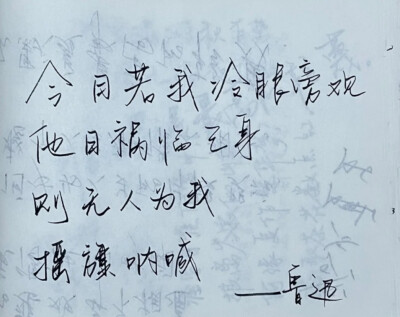 今日若我冷眼旁观
他日祸临己身
则无人为我
摇旗呐喊
——鲁迅